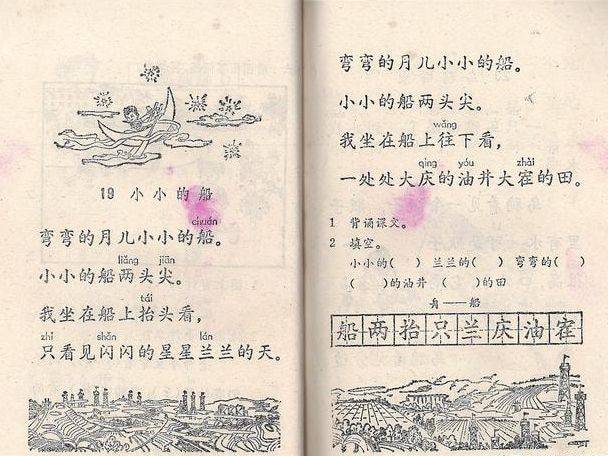 19 小小的船
chuán
弯弯的月儿小小的船。
liǎng jiān
小小的船两头尖。
tái
我坐在船上抬头看，
zhǐ shǎn lán
只看见闪闪的星星兰兰的天。
弯弯的月儿小小的船。
小小的船两头尖。
wǎng
我坐在船上往下看，
qìng yóu zhài
一处处大庆的油井大寨的田。
1 背诵课文。
2 填空。
小小的( ) 兰兰的( ) 弯弯的( )
( )的油井 ( )的田
舟——船
船两抬只兰庆油寨